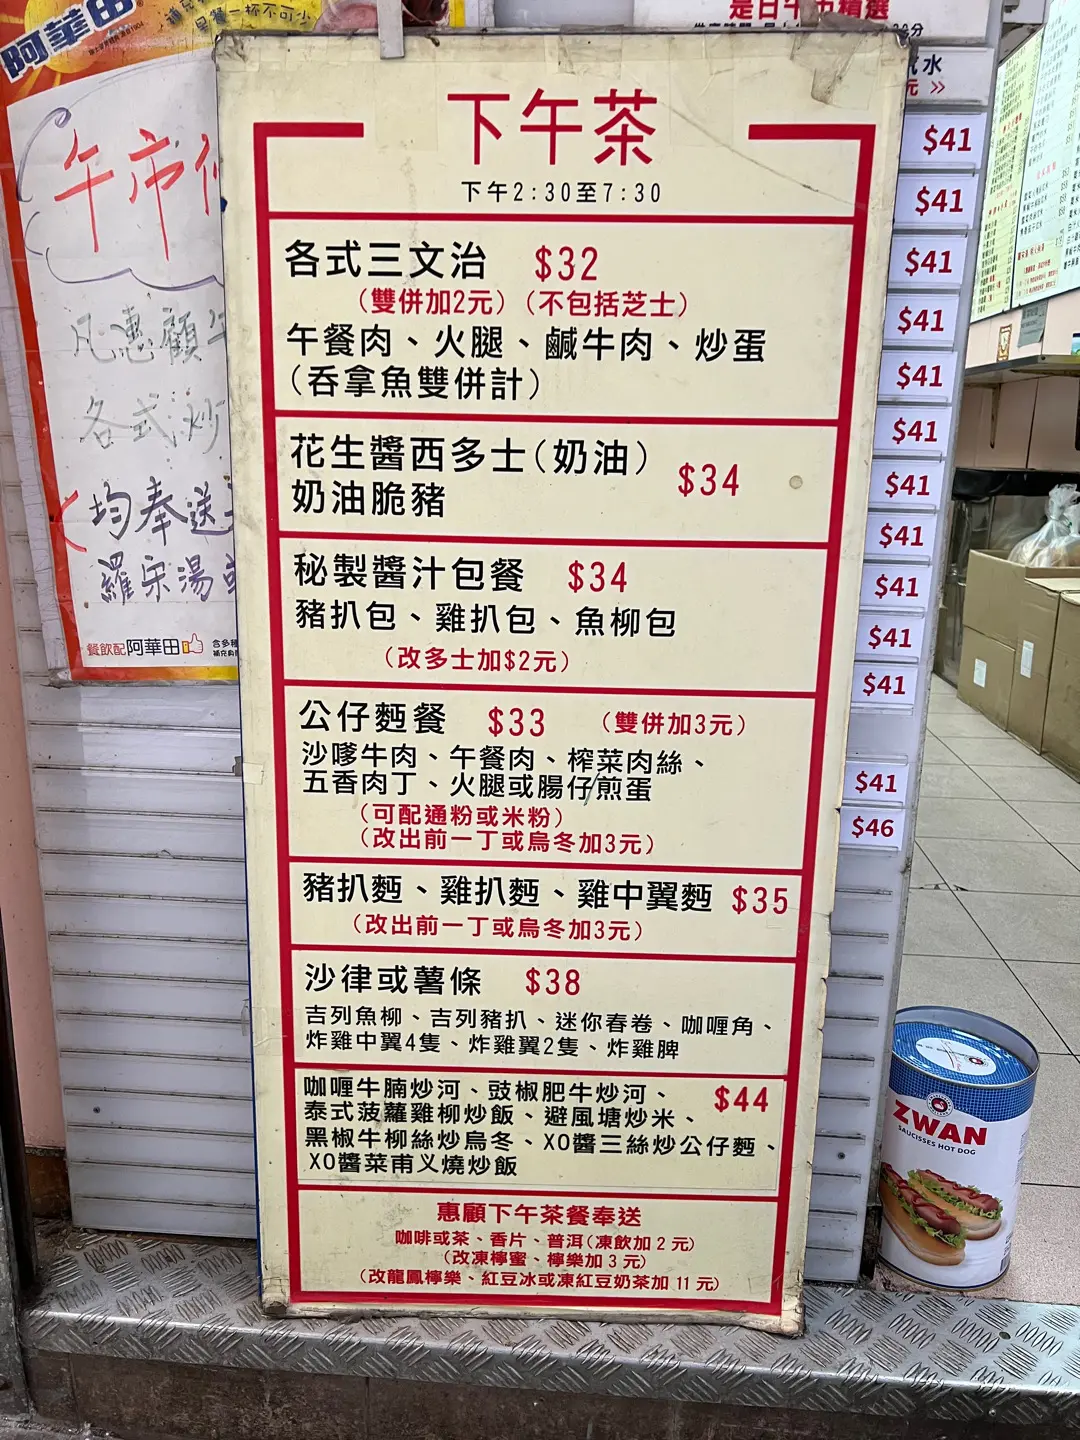 阿華田
早餐一杯不可少
是日午市精選
午市
凡惠顧
各式炒
均奉送
羅宋湯
餐飲配阿華田
水
下午茶
下午2:30至7:30
各式三文治 $32
(雙併加2元)(不包括芝士)
午餐肉、火腿、鹹牛肉、炒蛋
(吞拿魚雙併計)
花生醬西多士(奶油)
奶油脆豬
$34
秘製醬汁包餐 $34
豬扒包、雞扒包、魚柳包
(改多士加$2元)
公仔麪餐 $33 (雙併加3元)
沙嗲牛肉、午餐肉、榨菜肉絲、
五香肉丁、火腿或腸仔煎蛋
(可配通粉或米粉)
(改出前一丁或烏冬加3元)
豬扒麪、雞扒麪、雞中翼麪 $35
(改出前一丁或烏冬加3元)
沙律或薯條 $38
吉列魚柳、吉列豬扒、迷你春卷、咖喱角、
炸雞中翼4隻、炸雞翼2隻、炸雞脾
咖喱牛腩炒河、豉椒肥牛炒河、 $44
泰式菠蘿雞柳炒飯、避風塘炒米、
黑椒牛柳絲炒烏冬、XO醬三絲炒公仔麪、
XO醬菜甫叉燒炒飯
惠顧下午茶餐奉送
咖啡或茶、香片、普洱(凍飲加2元)
(改凍檸蜜、檸樂加3元)
(改龍鳳檸樂、紅豆冰或凍紅豆奶茶加11元)
$41
$41
$41
$41
$41
$41
$41
$41
$41
$41
$41
$41
$46
ZWAN
SAUCISSES HOT DOG